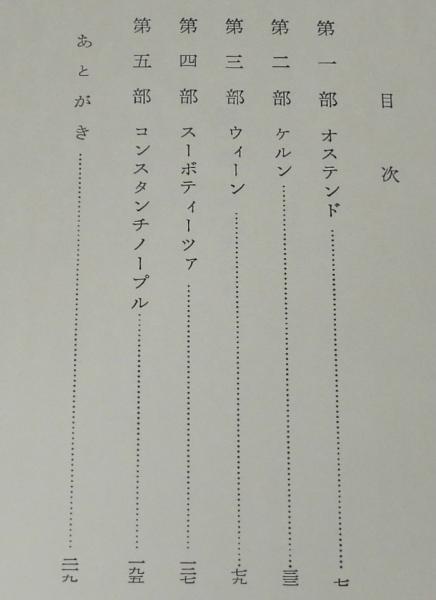 目次
第一部 オステンド……七
第二部 ケルン……三三
第三部 ウィーン……七九
第四部 スーボティーツァ……一二七
第五部 コンスタンチノープル……一九五
あとがき……二一九